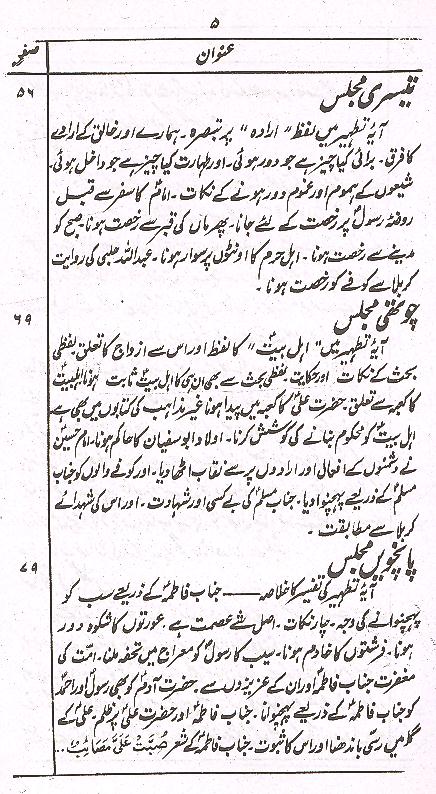 ۵
عنوان
صفحہ
تیسری مجلس
۵۶
آیۂ تطہیر میں لفظ "ارادہ" پر تبصرہ۔ ہمارے اور خالق کے ارادے
کا فرق۔ برائی کیا چیز ہے جو دور ہوئی۔ اور طہارت کیا چیز ہے جو داخل ہوئی۔
شیعوں کے ہموم اور غموم دور ہونے کے نکات۔ امام کا سفر سے قبل
روضۂ رسول پر رخصت کے لئے جانا۔ پھر ماں کی قبر سے رخصت ہونا۔ صبح کو
مدینے سے رخصت ہونا۔ اہل حرم کا اونٹوں پر سوار ہونا۔ عبداللہ حلبی کی روایت
کربلا سے کوفے کو رخصت ہونا۔
چوتھی مجلس
۶۹
آیۂ تطہیر میں "اہل بیت" کا لفظ اور اس سے ازواج کا تعلق۔ لفظی
بحث کے نکات اور حکایت۔ لفظی بحث سے بھی ان ہی کا اہل بیت ثابت ہونا اہلبیت
کا کعبہ سے تعلق۔ حضرت علی کا کعبہ میں پیدا ہونا غیر مذاہب کی کتابوں میں بھی ہے
اہل بیت کو محکوم بنانے کی کوشش کرنا۔ اولاد ابوسفیان کا حاکم ہونا۔ امام حسین
نے دشمنوں کے افعال اور ارادوں پر سے نقاب اٹھا دیا۔ اور کوفے والوں کو جناب
مسلم کے ذریعے پہچنوا دیا۔ جناب مسلم کی بے کسی اور شہادت۔ اور اس کی شہدائے
کربلا سے مطابقت۔
پانچویں مجلس
۷۹
آیۂ تطہیر کی تفسیر کا خلاصہ —— جناب فاطمہ کے ذریعے سب کو
پہچنوانے کی وجہ۔ چار نکات۔ اصل شے عصمت ہے عورتوں کا شکوہ دور
ہونا۔ فرشتوں کا خادم ہونا۔ سیب کا رسول کو معراج میں تحفہ ملنا۔ امت کی
مغفرت جناب فاطمہ اور ان کے عزیزوں سے۔ حضرت آدم کو بھی رسول اور احمد
کو جناب فاطمہ کے ذریعے پہچنوانا۔ جناب فاطمہ اور حضرت علی پر ظلم۔ علی کے
گلے میں رسی باندھنا اور اس کا ثبوت۔ جناب فاطمہ کے شعر صُبَّتْ عَلَیَّ مَصَائِبُ...